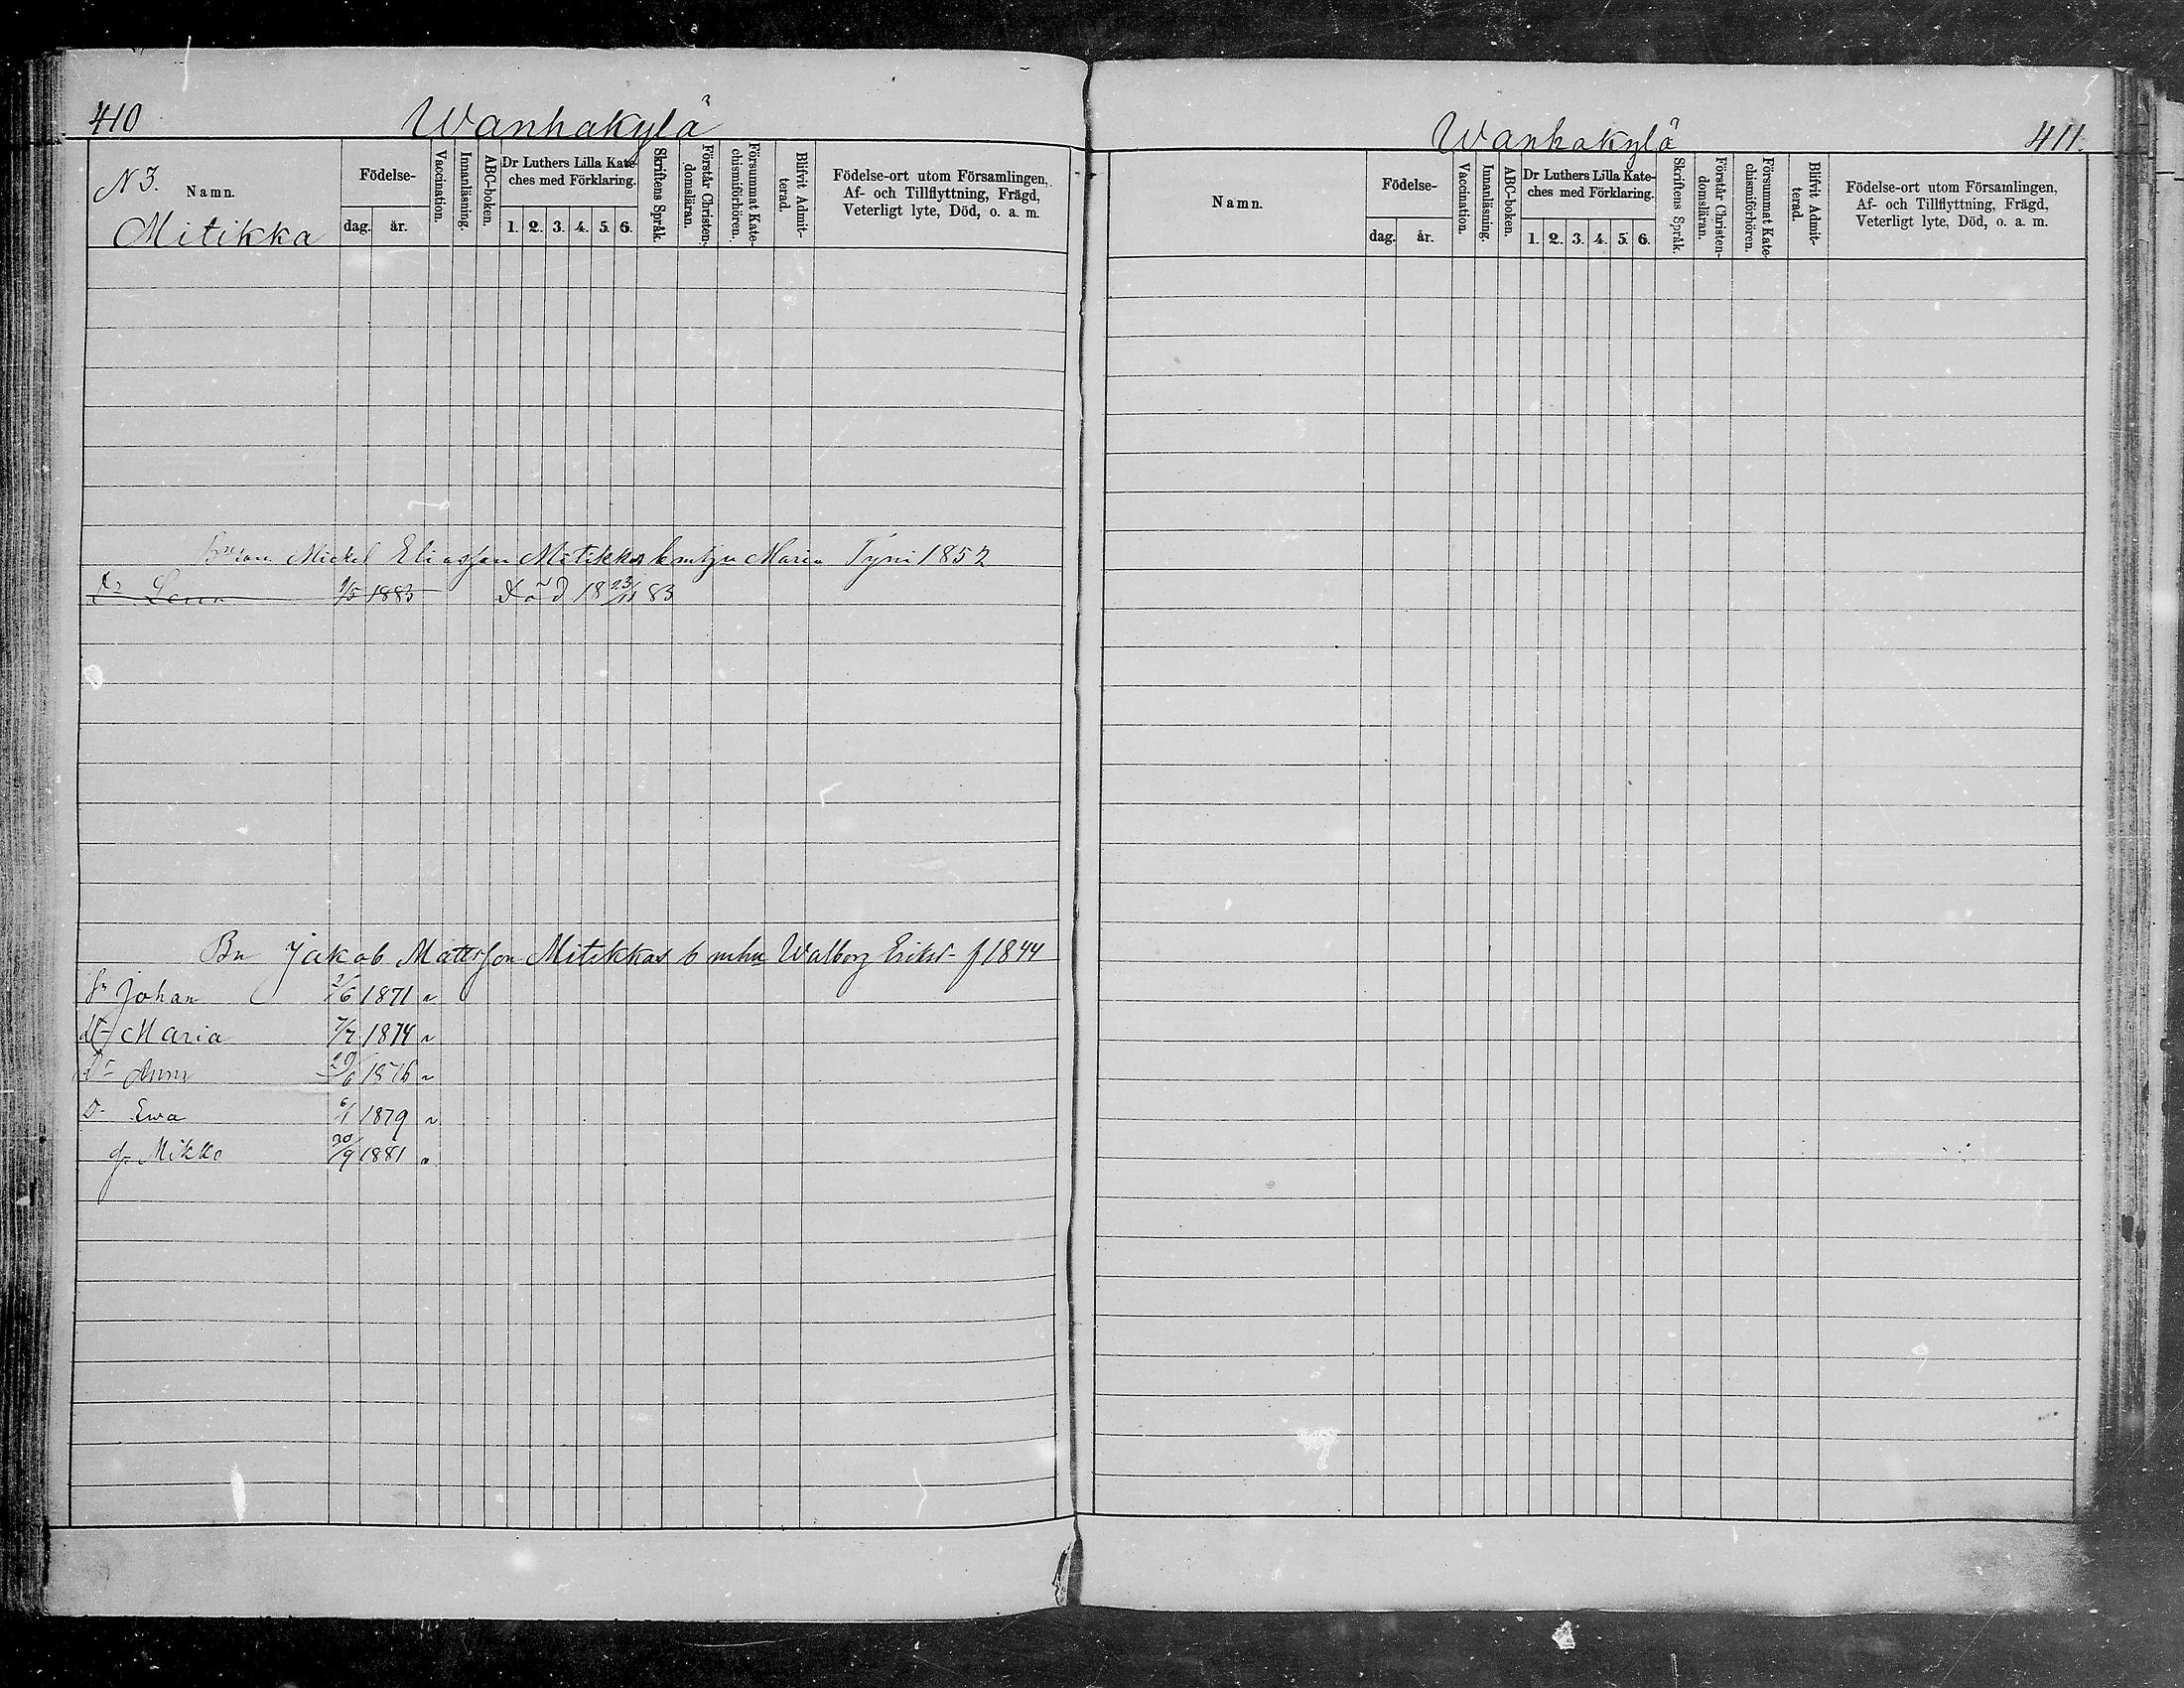 410 Wanhakylä
N 3.
Namn.
Mitikka
Födelse-
dag. år.
Vaccination.
Innanläsning.
ABC-boken.
Dr Luthers Lilla Kate-
ches med Förklaring.
1. 2. 3. 4. 5. 6.
Skriftens Språk.
Förstår Christen-
domsläran.
Försummat Kate-
chismiförhören.
Blifvit Admit-
terad.
Födelse-ort utom Församlingen,
Af- och Tillflyttning, Frägd,
Veterligt lyte, Död, o. a. m.
Mickel Eliasson Mitikkas Maria Tyni 1852
Dr Lena 1/5 1883 Död 18 23/11 83
Bn Jakob Mattsson Mitikkas b mhu Walborg Eriksd f 1844
Sn Johan 2/6 1871
Dr Maria 7/7 1874
Dr Anna 20/6 1876
Dr Ewa 6/1 1879
Sn Mikko 20/9 1881
Wanhakylä 411.
Namn.
Födelse-
dag. år.
Vaccination.
Innanläsning.
ABC-boken.
Dr Luthers Lilla Kate-
ches med Förklaring.
1. 2. 3. 4. 5. 6.
Skriftens Språk.
Förstår Christen-
domsläran.
Försummat Kate-
chismiförhören.
Blifvit Admit-
terad.
Födelse-ort utom Församlingen,
Af- och Tillflyttning, Frägd,
Veterligt lyte, Död, o. a. m.